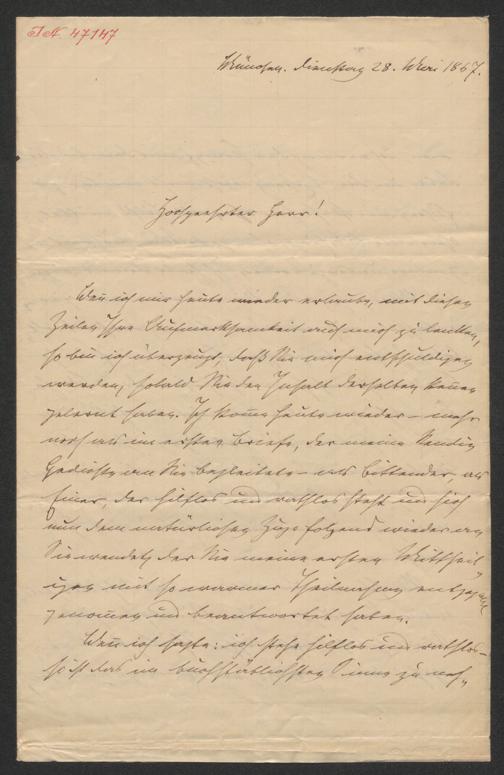 J.N. 47147
München. Dienstag 28. Mai 1867.
Hochgeehrter Herr!
Wen̄ ich mir heute wieder erlaube, mit diesen
Zeilen Ihre Aufmerksamkeit auf mich zu lenken,
so bin ich überzeugt, daß Sie mich entschuldigen
werden, sobald Sie den Inhalt derselben kennen
gelernt haben. Ich kom̄e heute wieder – mehr
noch als im ersten Briefe, der meine
Gedichte an Sie begleitete – als Bittender, als
Einer, der hilflos und rathlos steht und sich
nun dem natürlichen Zuge folgend wieder an
Sie wendet, der Sie meine ersten Mittheil-
ungen mit so warmer Theilnahme entgegen
genom̄en und beantwortet haben.
Wen̄ ich sagte: ich stehe hilflos und rathlos –
so ist das im buchstäblichsten Sinne zu neh-